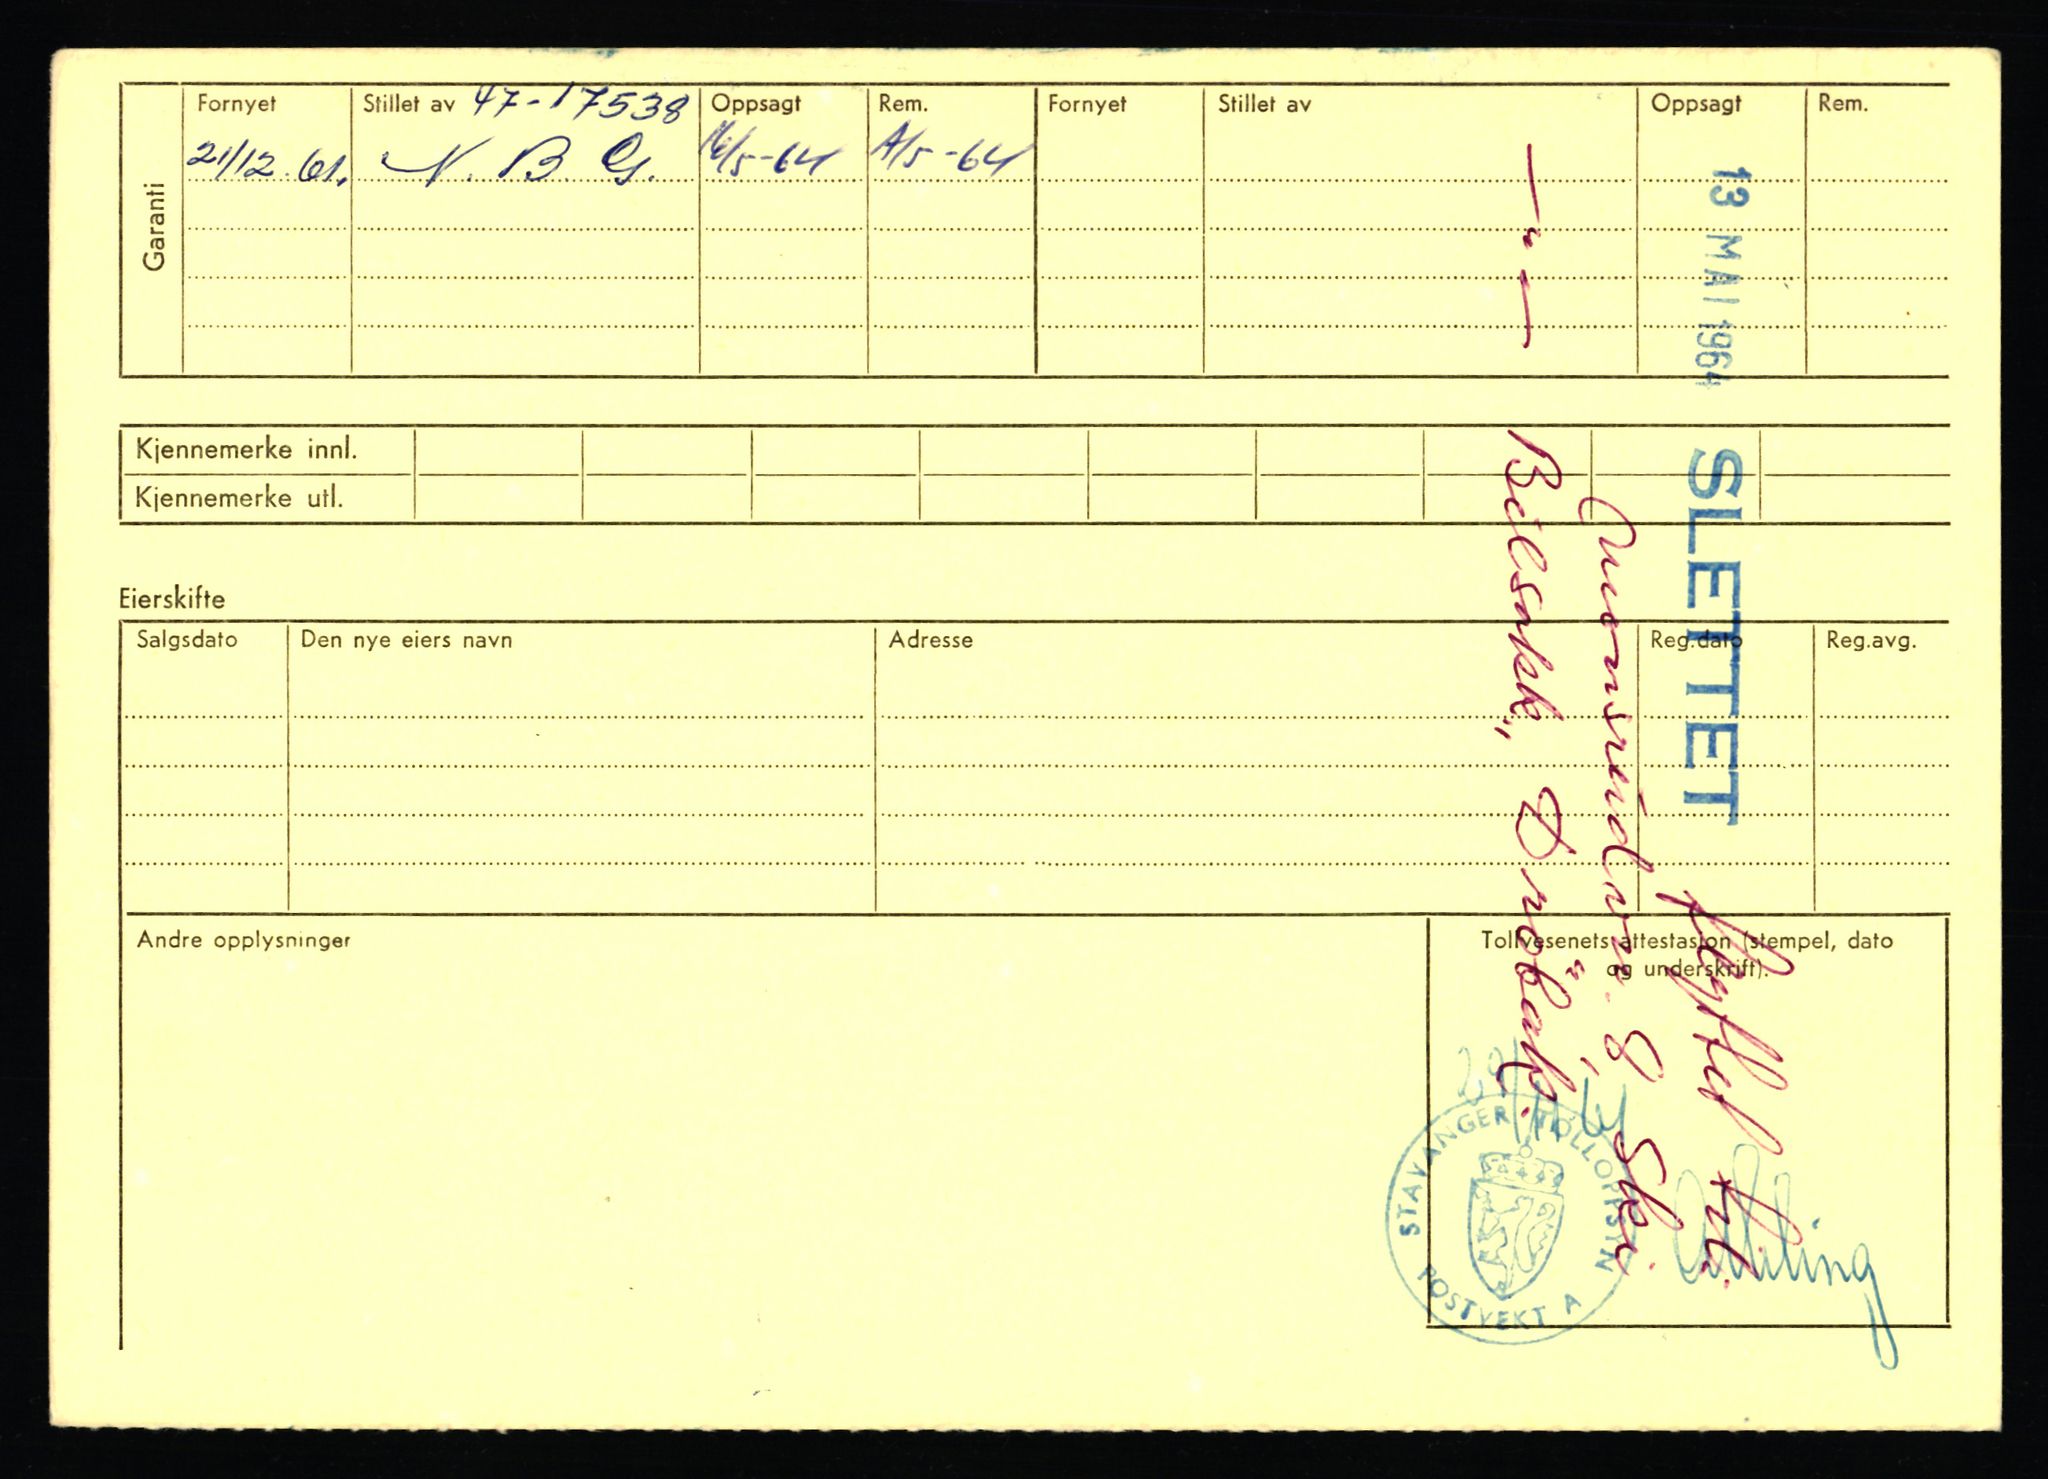 Garanti
Fornyet
Stillet av 47-17538
Oppsagt
Rem.
Fornyet
Stillet av
Oppsagt
Rem.
21/12.61. N. B. G.
/5-64
/5-64
13 MAI 1964
SLETTET
Kjennemerke innl.
Kjennemerke utl.
Eierskifte
Salgsdato
Den nye eiers navn
Adresse
Reg.dato
Reg.avg.
Andre opplysninger
Tollvesenets attestasjon (stempel, dato
og underskrift).
flyttet til
8, Ski.
— " —
"Drøbak.
STAVANGER TOLLOPPSYN
POSTVEKT A